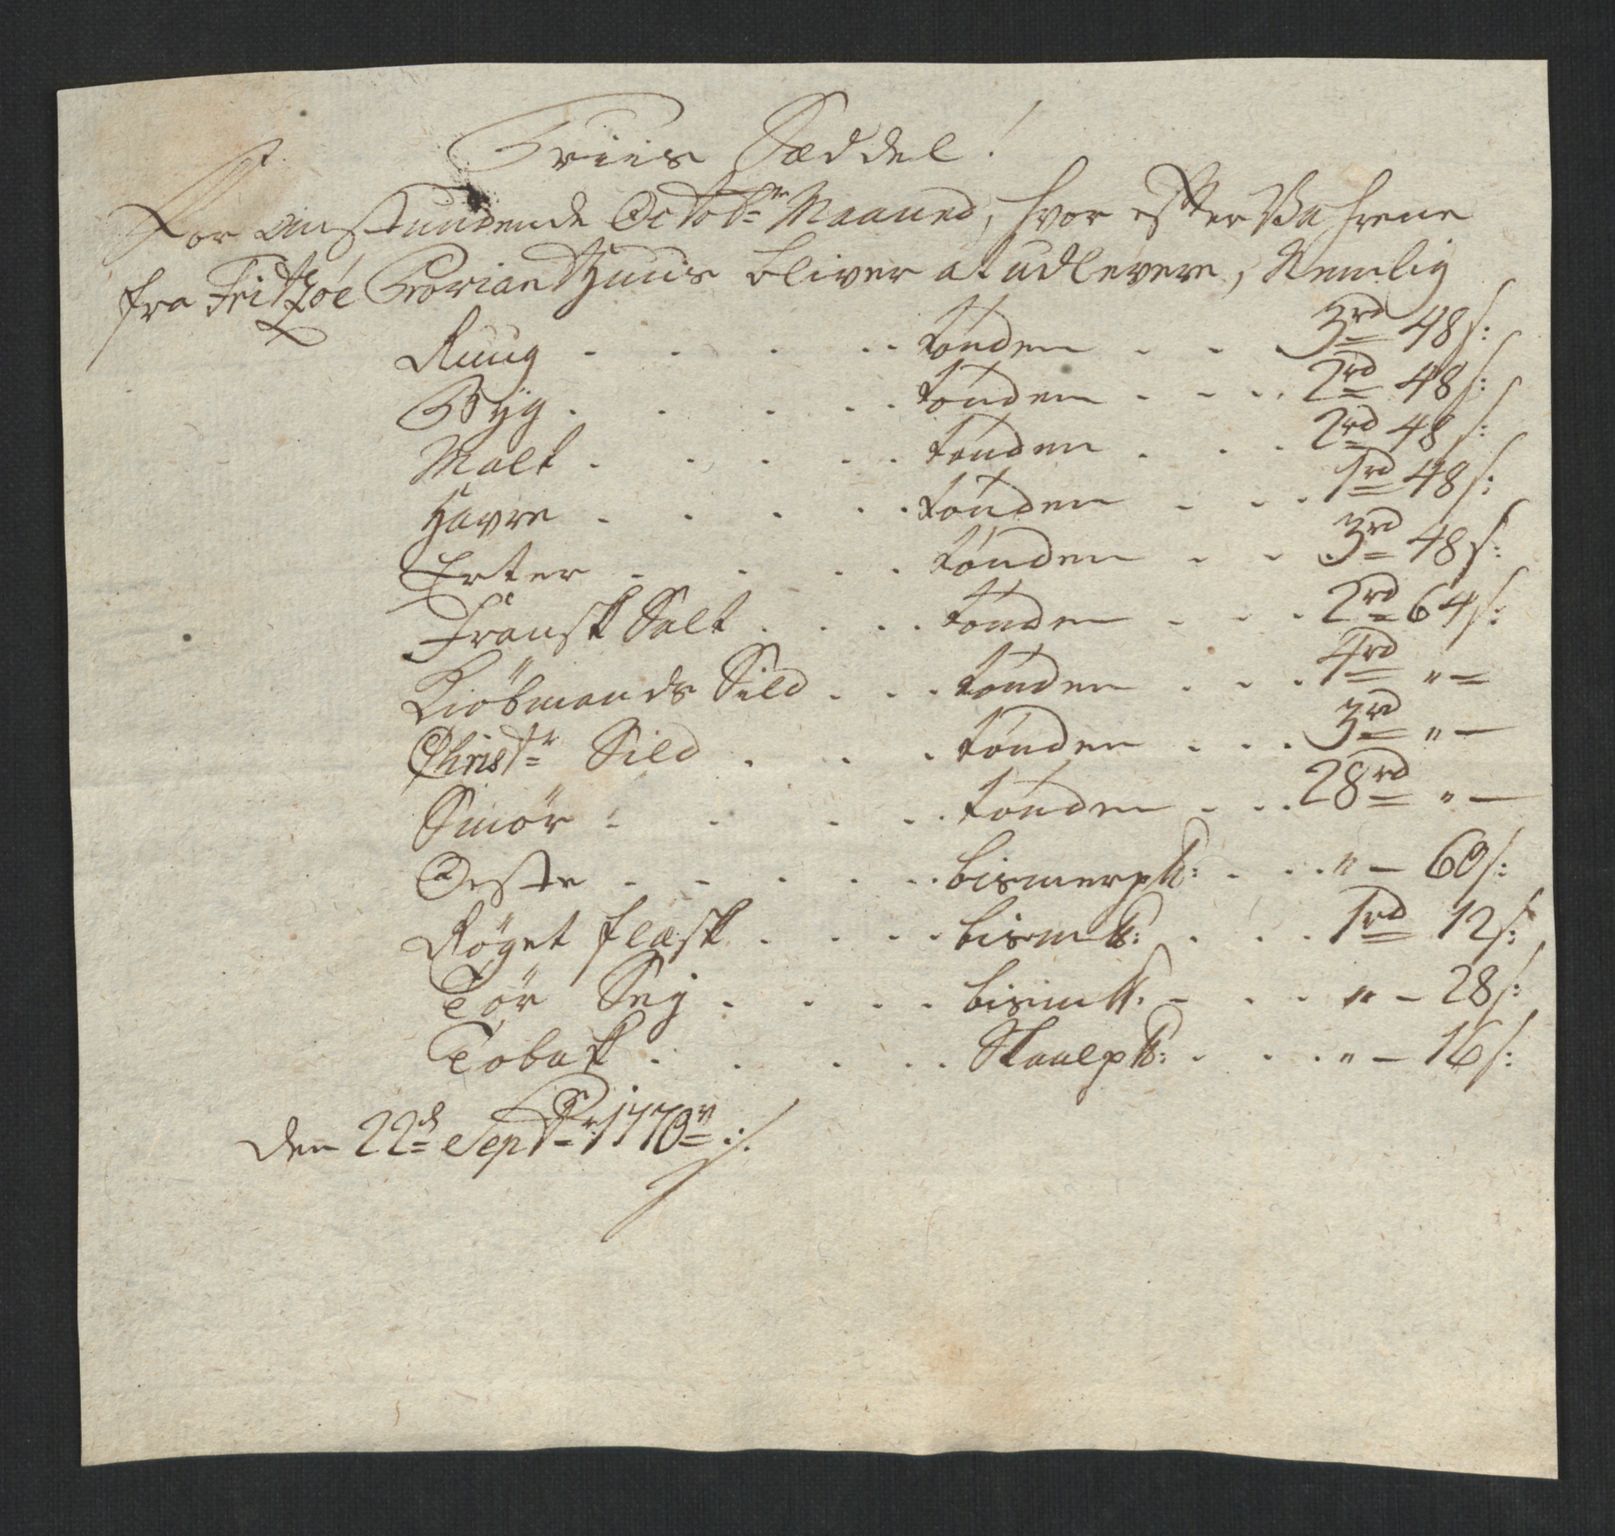 Priis Sæddel!
For anstundende Octobr Maaned, hvor efter Vahrene
fra Fritzøe Proviant Huus bliver at udlevere, Nemlig
Ruug . . . . . tønden . . . 3rd 48s:
Byg . . . . . tønden . . . 2rd 48s:
Malt . . . . . tønden . . . 2rd 48s:
Havre . . . . . tønden . . . 1rd 48s:
Erter . . . . tønden . . . 3rd 48s:
Fransk Salt . . . . tønden . . . 2rd 64s:
Kiøbmands Sild . . . tønden . . . 4rd " —
Christr Sild . . . tønden . . . 3rd " —
Smør . . . . . tønden . . . 28rd " —
Oste . . . . . bismerp℔: . . . " — 60s:
Røget flesk . . . . bism℔: . . . 1rd 12s:
Tør Sej . . . . bism℔: . . . " — 28s:
Tobak . . . . . Skaalp℔: . . . " — 16s:
den 22d Septr 1770